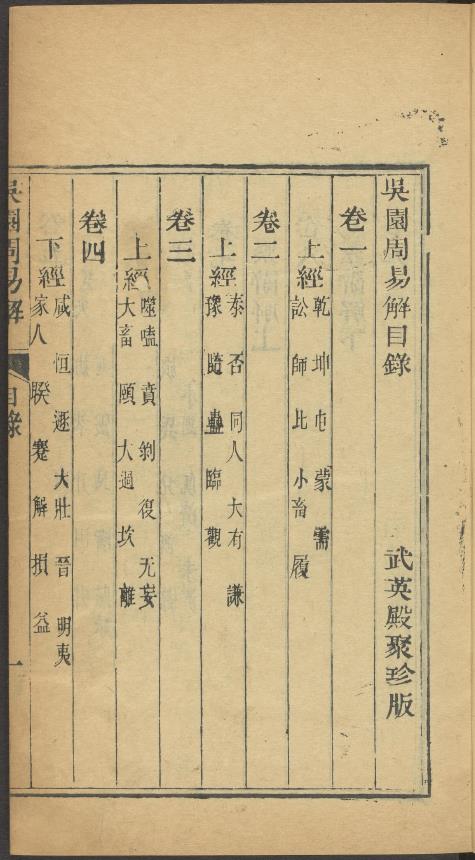 吳園周易解目錄 武英殿聚珍版
卷一
上經 乾 坤 屯 蒙 需
訟 師 比 小畜 履
卷二
上經 泰 否 同人 大有 謙
豫 隨 蠱 臨 觀
卷三
上經 噬嗑 賁 剝 復 无妄
大畜 頤 大過 坎 離
卷四
下經 咸 恒 遯 大壯 晉 明夷
家人 睽 蹇 解 損 益
吳園周易解 目錄 一